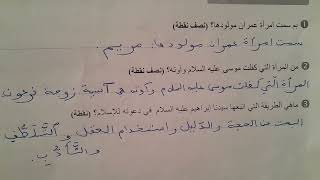 ❶ بم سمت امرأة عمران مولودها؟ (نصف نقطة)
سمت امرأة عمران مولودها: مريم.
❷ من المرأة التي كفلت موسى عليه السلام وآوته؟ (نصف نقطة)
المرأة التي كفلت موسى عليه السلام وآوته هي آسية زوجة فرعون
❸ ماهي الطريقة التي اتبعها سيدنا إبراهيم عليه السلام في دعوته للاسلام؟ (نقطة)
البحث عن الحجة والدليل واستخدام العقل والتلطف
والتأدب.